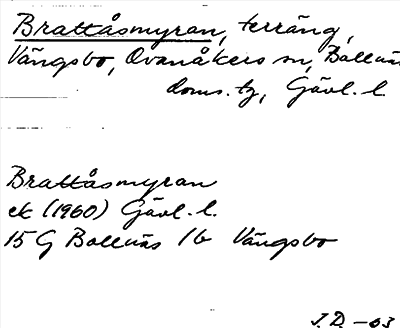 Brattåsmyran, terräng,
Vängsbo, Ovanåkers sn, Bollnäs
doms. tg, Gävl. l.
Brattåsmyran
ek (1960) Gävl. l.
15 G Bollnäs 1b Vängsbo
J.D. -63